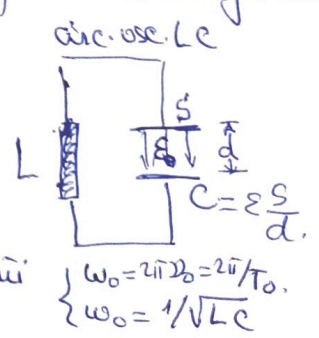 circ. osc. LC
S
L
ε₀
d
C = ε S/d.
ω₀ = 2πν₀ = 2π/T₀.
ω₀ = 1/√LC